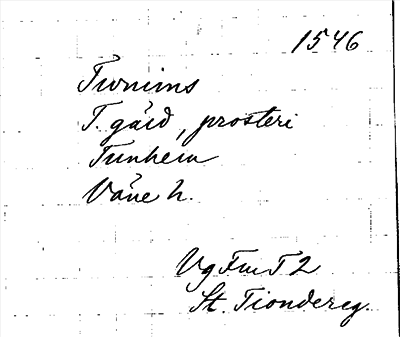 1546
Twnims
T. gård, prosteri
Tunhem
Väne h.
Vg Fm T 2
St. Tiondereg.